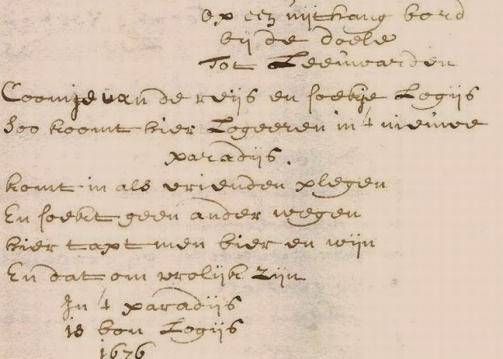 op een uithang bord
bij de doele
Tot Leeuwarden
Coomje van de reijs en soekje Logijs
Soo koomt hier Logeeren in 't nieuwe
paradijs.
komt in als vrienden plegen
En soekt geen ander wegen
hier tapt men bier en wijn
En dat om vrolijk zijn
In 't paradijs
is bon Logijs
1676